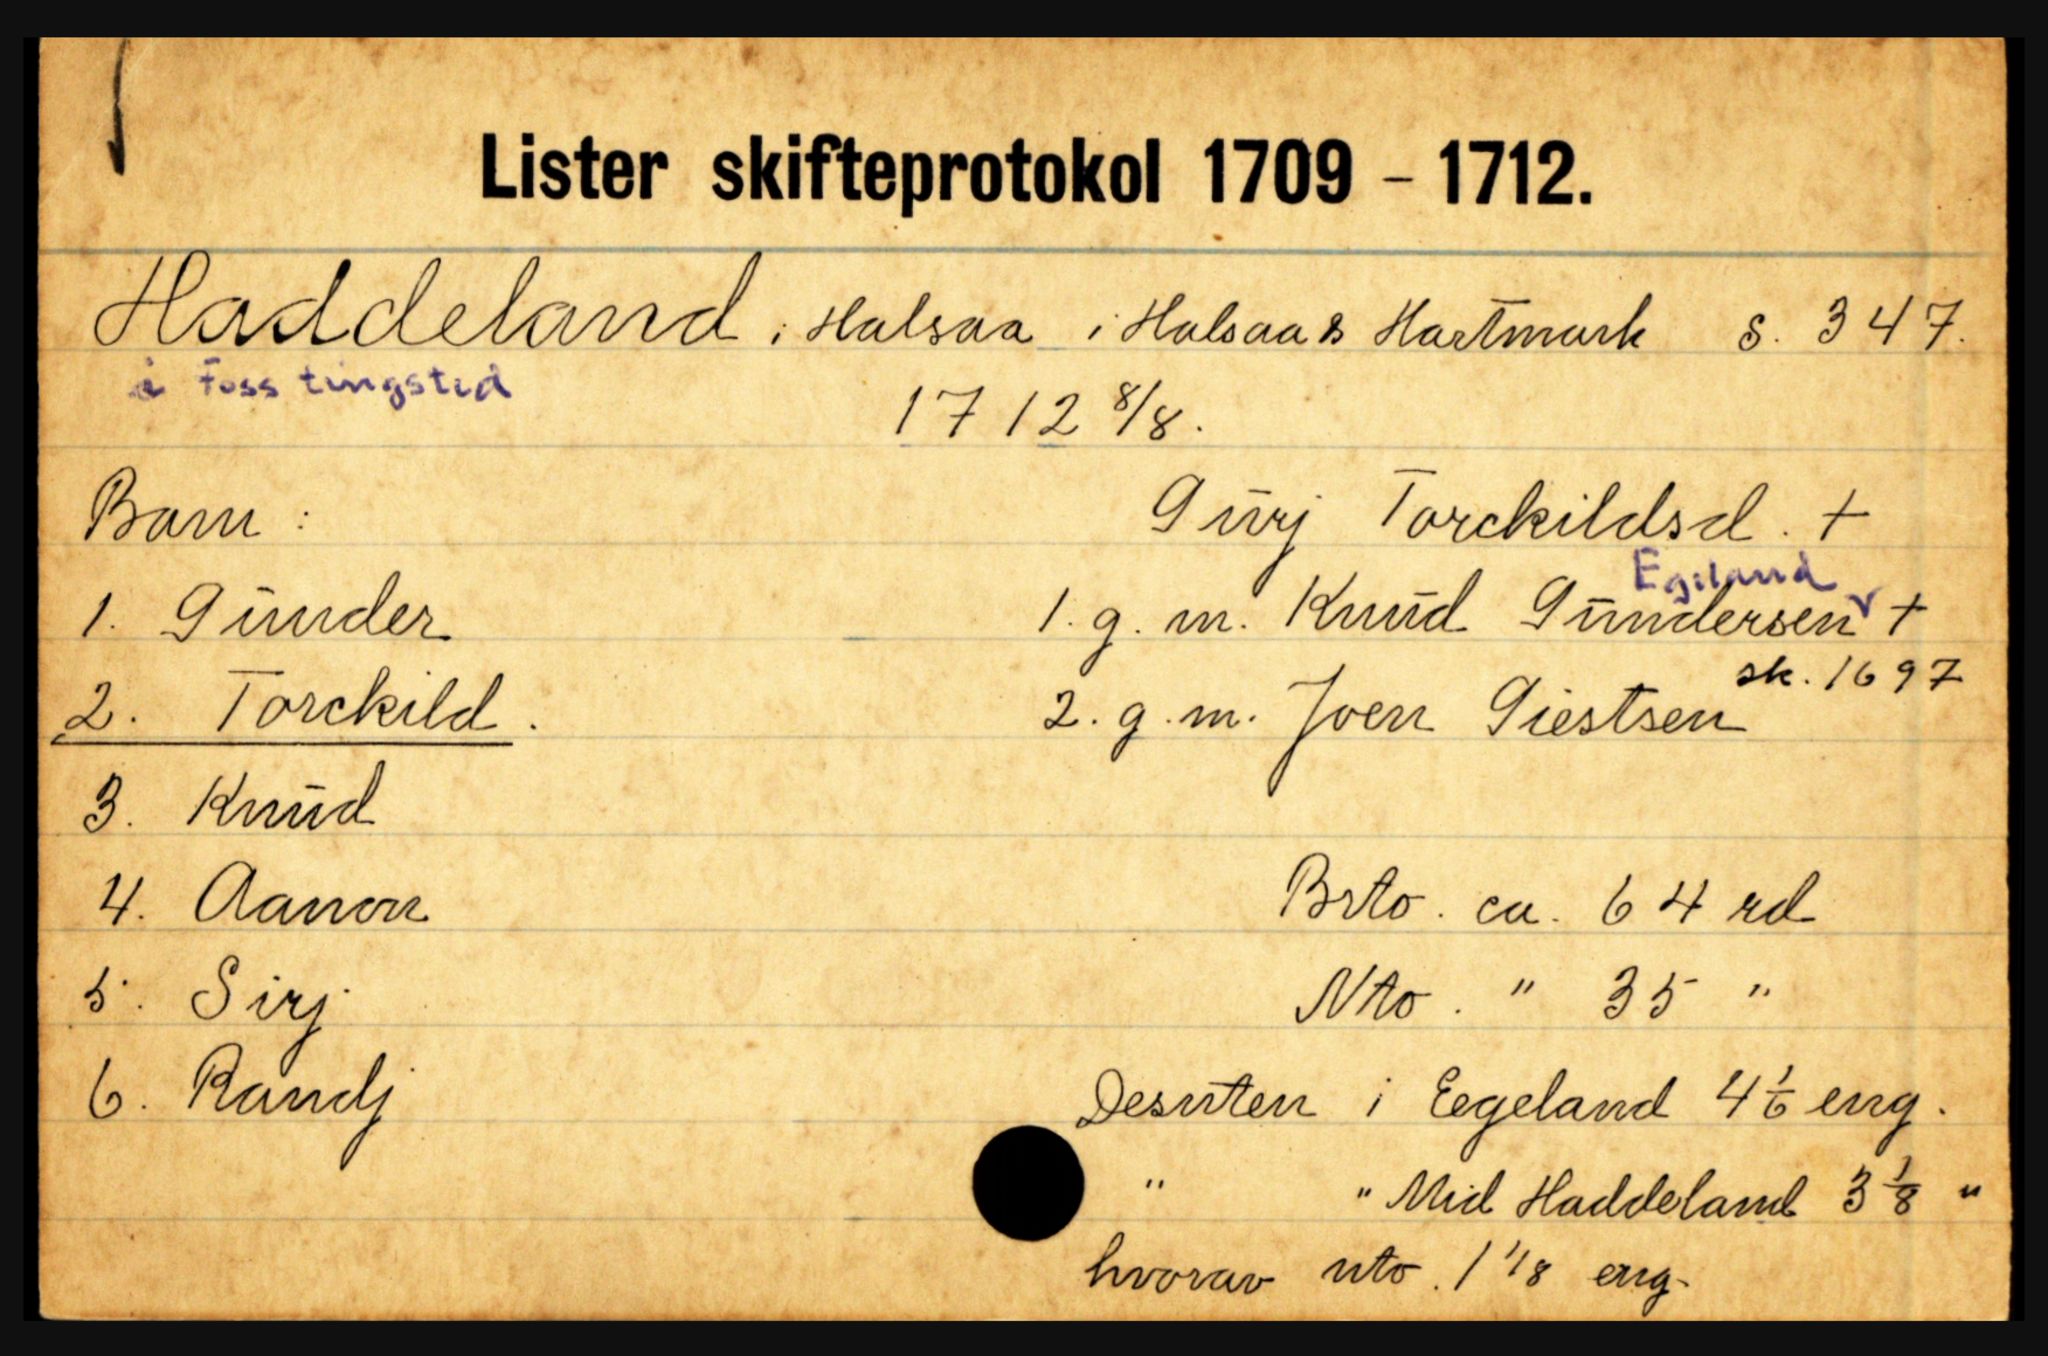 Lister skifteprotokol 1709 - 1712.
Haddeland i Halsaa i Halsaa & Hartmark s. 347.
i Foss tingsted
1712 8/8.
Barn :
Gürj Torckildsd. +
1. Günder
Egeland
1. g. m. Knud Gündersen +
sk. 1697
2. Torckild.
2. g. m. Joen Giestsen
3. Knüd
4. Aanon
Brto. ca. 64 rd
5. Sirj
Nto. " 35 "
6. Randj
Desuten i Eegeland 4 1/6 eng.
" " Mid Haddeland 3 1/8 "
hvorav nto. 1 1/8 eng.